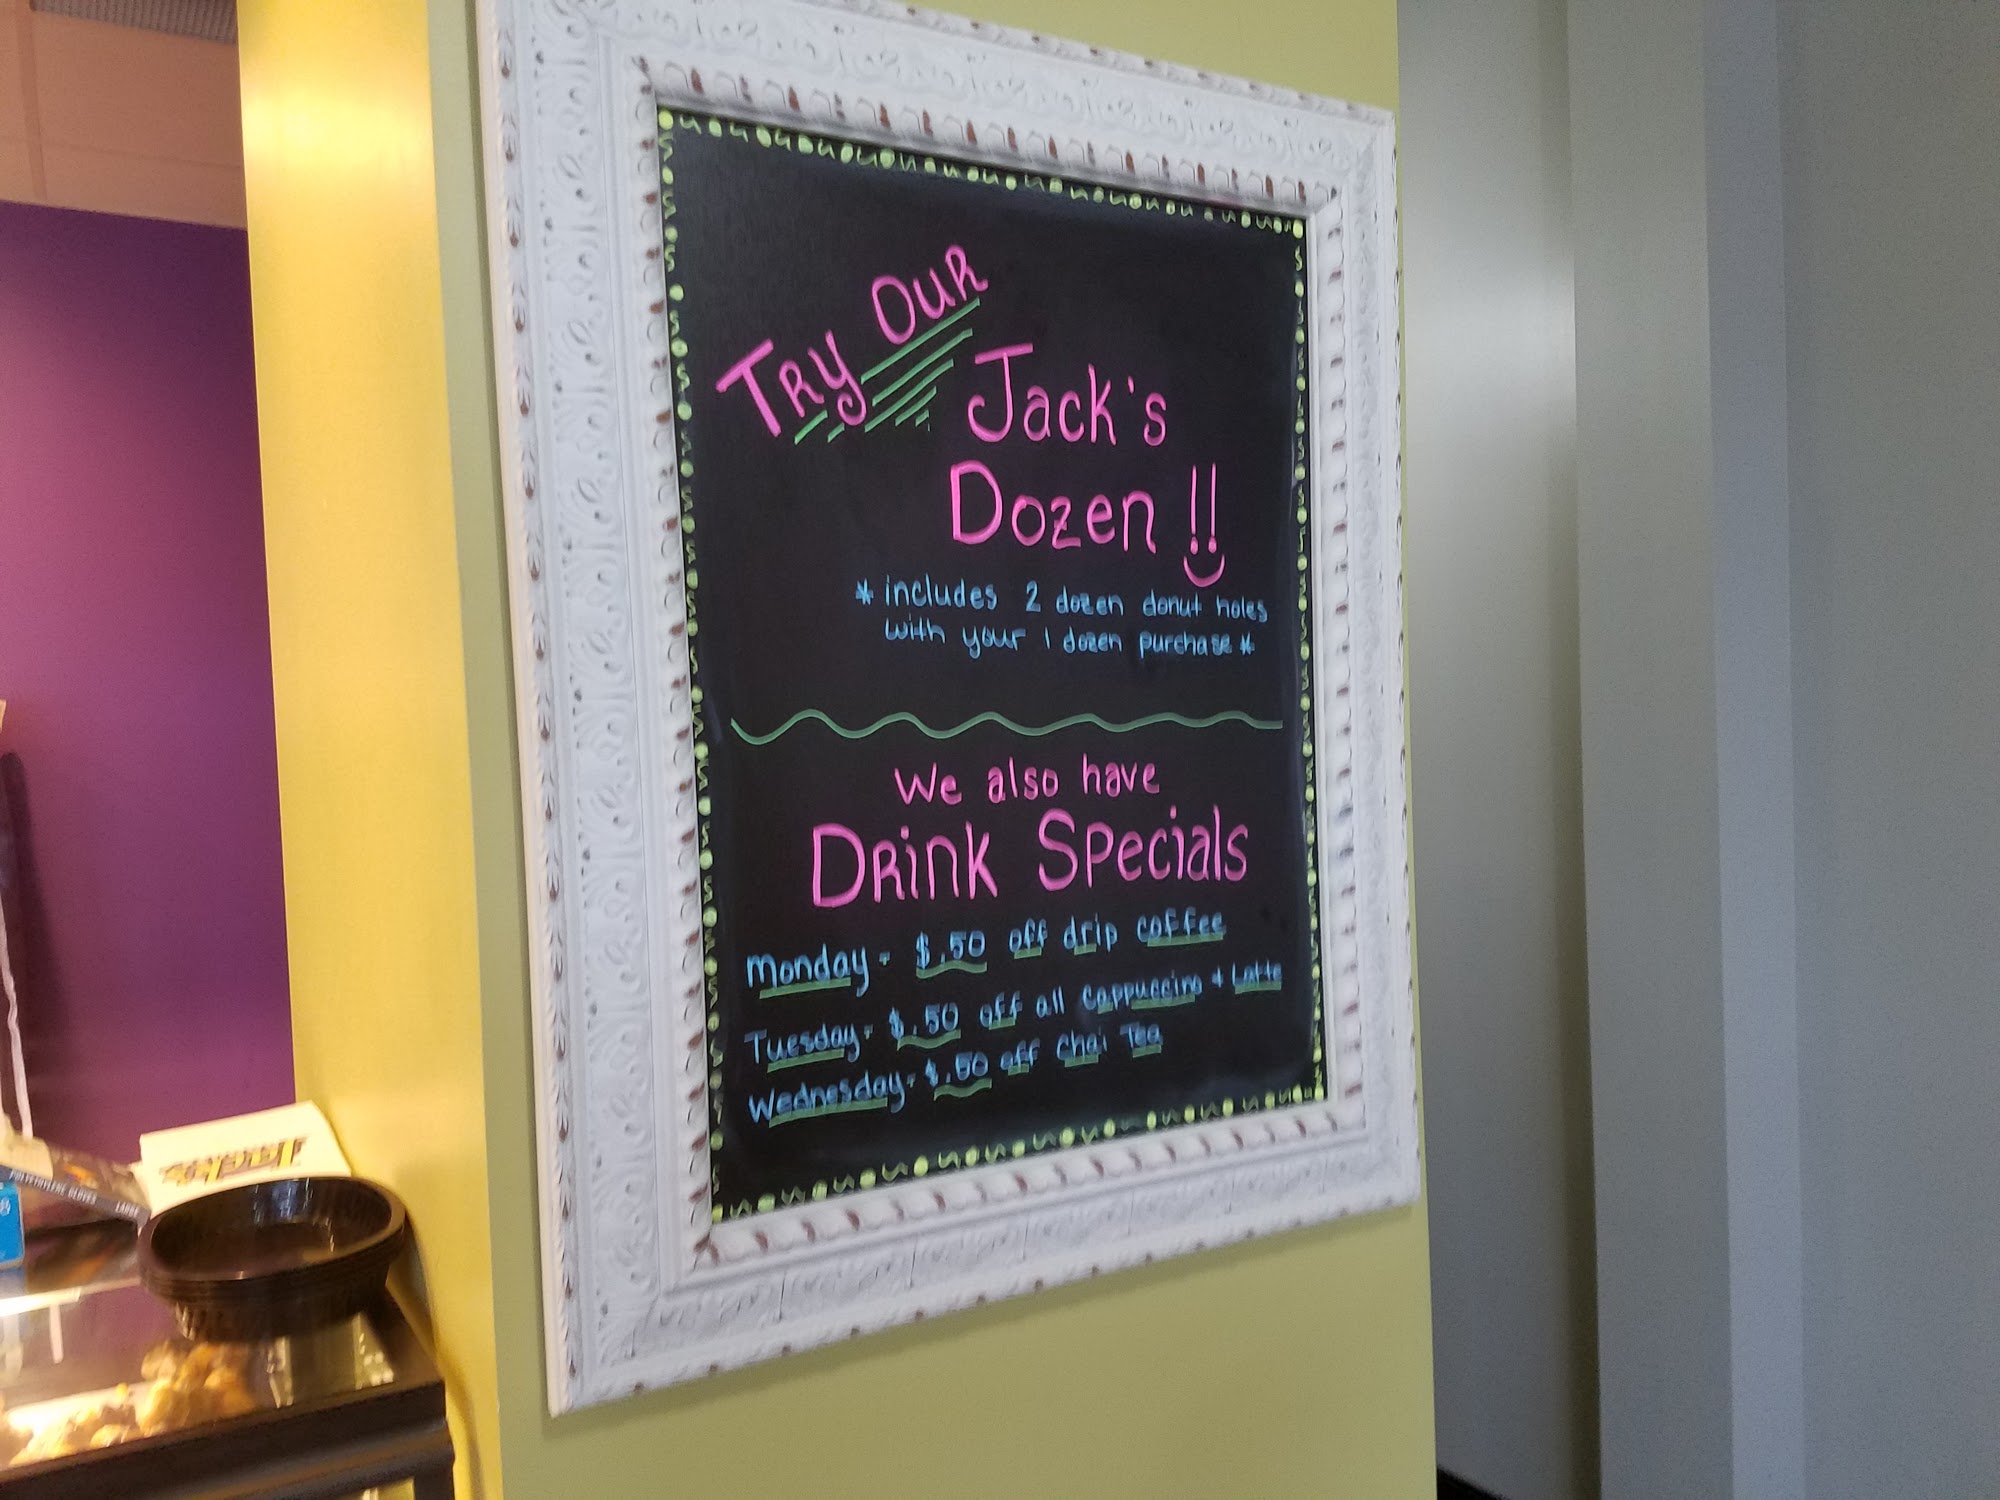 Try Our
Jack's
Dozen !!
* includes 2 dozen donut holes
with your 1 dozen purchase *
We also have
Drink Specials
Monday - $.50 off drip coffee
Tuesday - $.50 off all cappuccino + Latte
Wednesday - $.50 off Chai Tea
POLYETHYLENE GLOVES
LARGE
Jack's